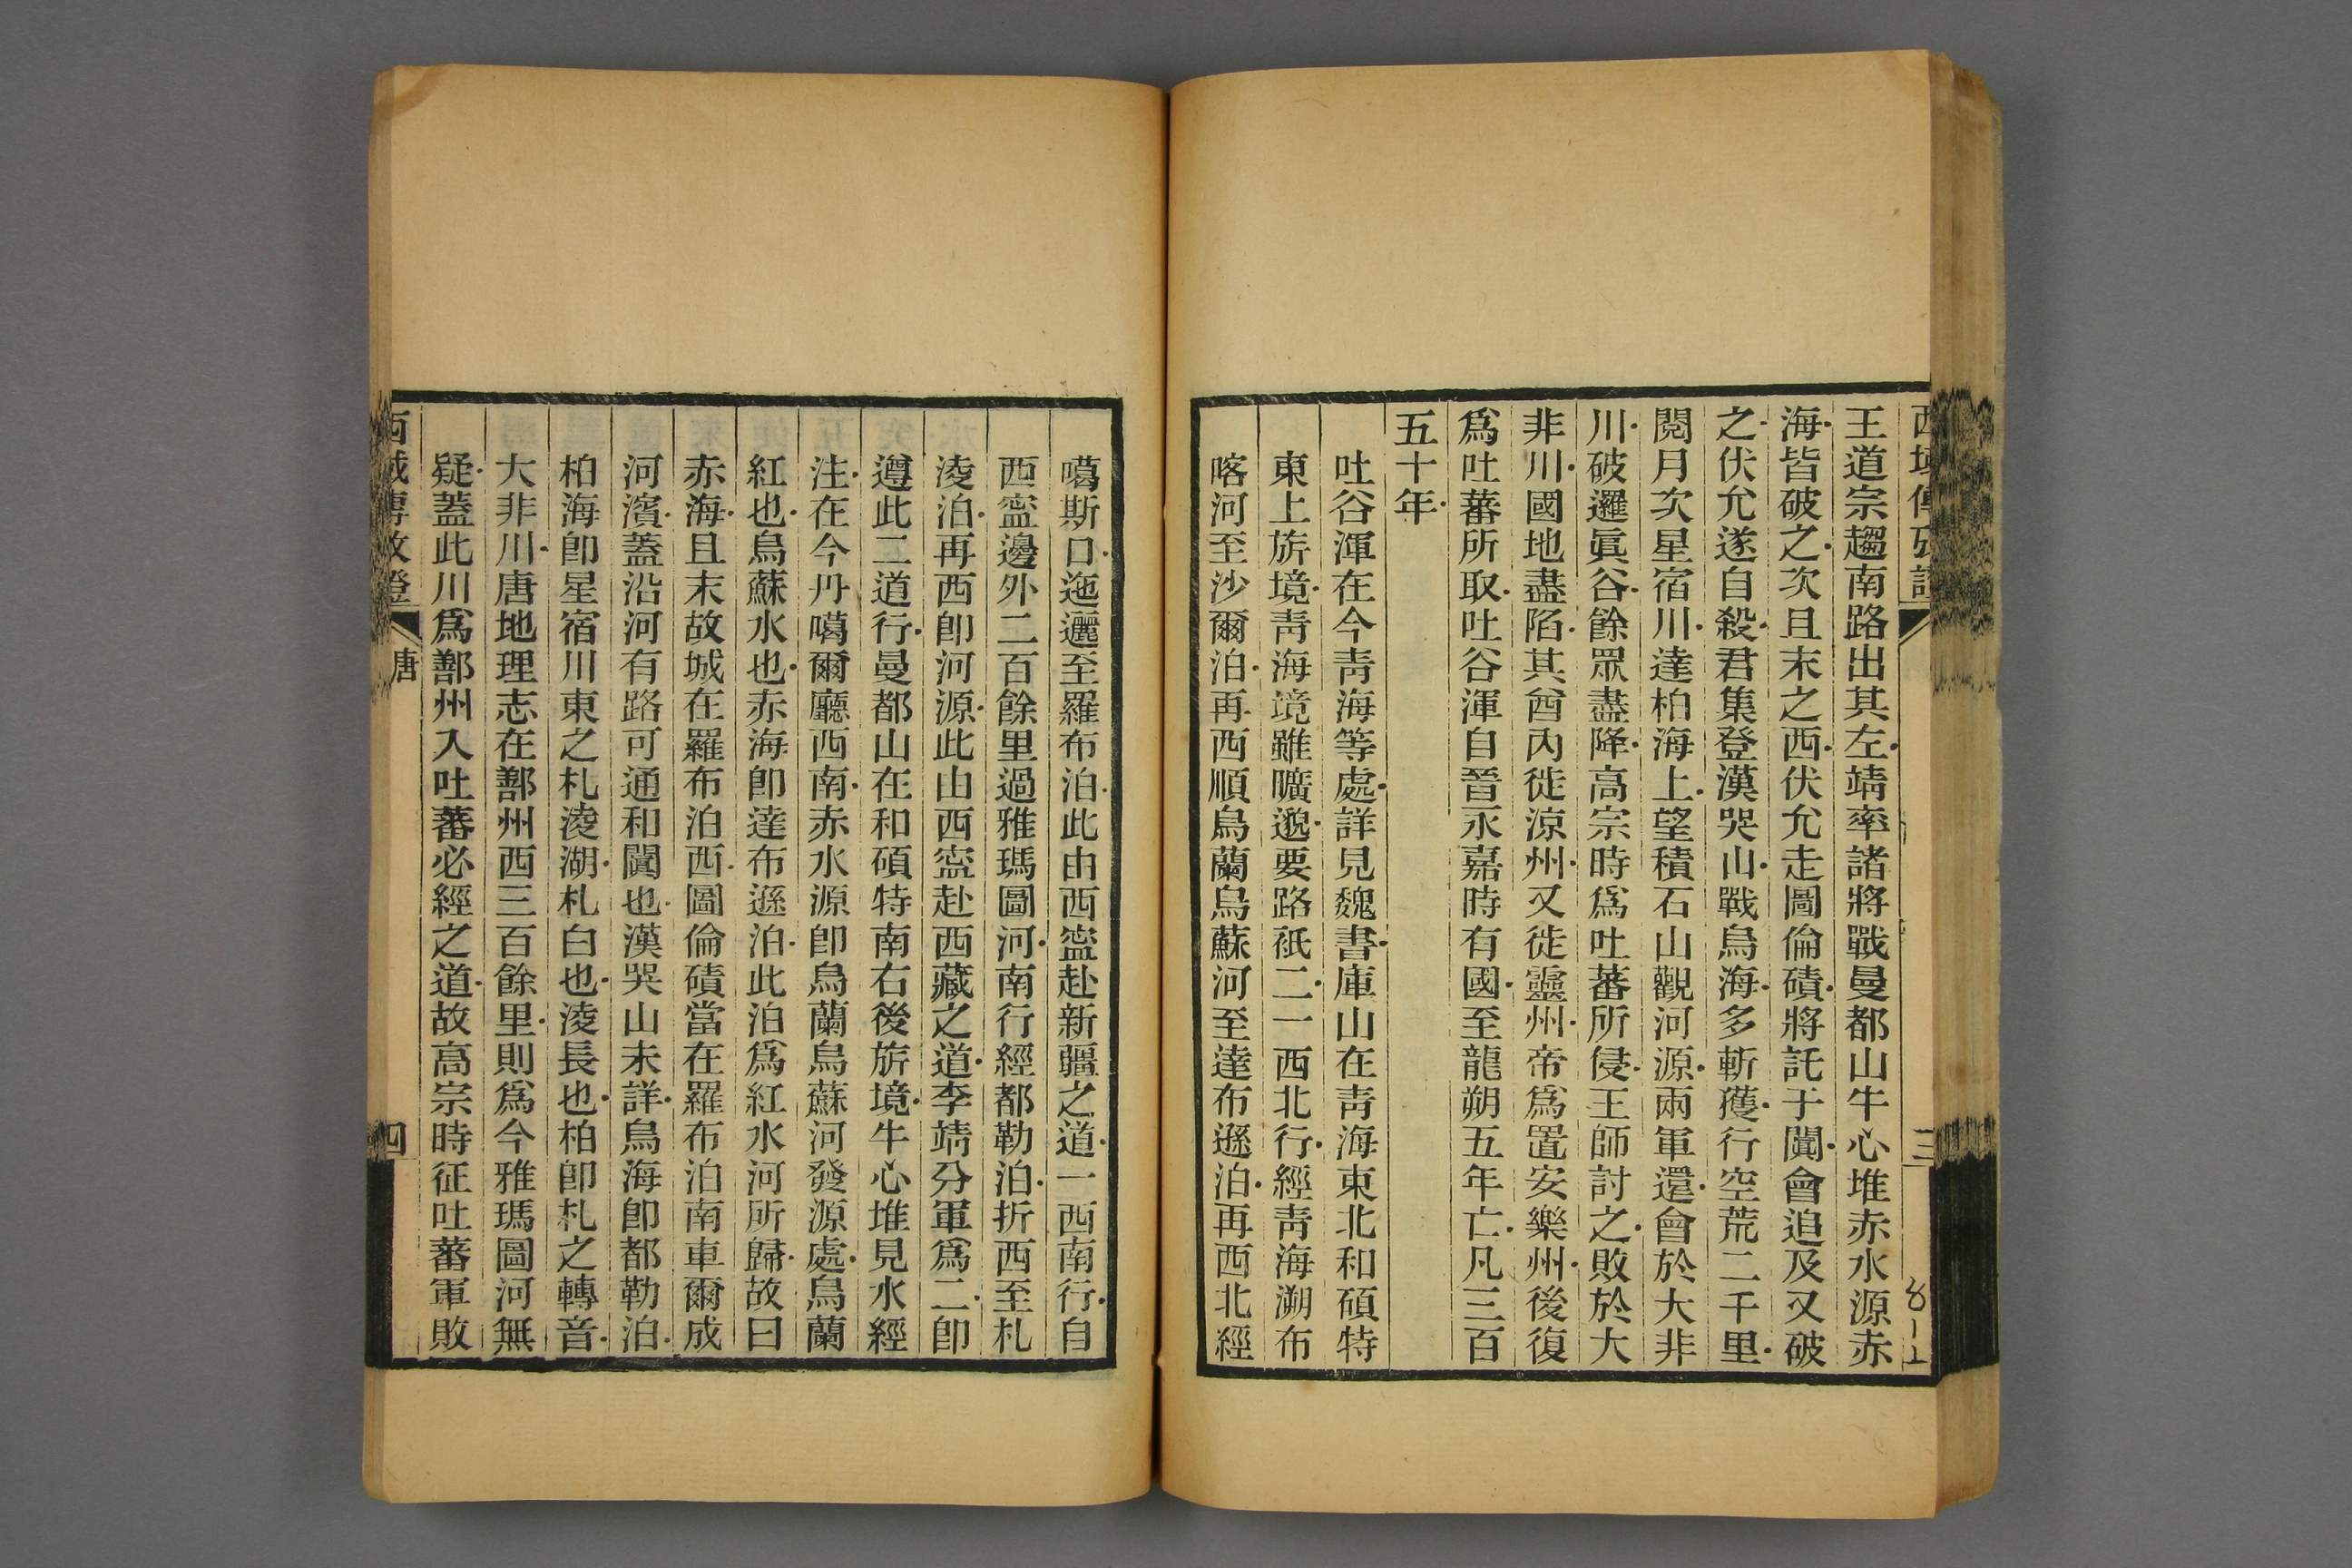 西域傳攷證
三
8-1
王道宗趨南路出其左靖率諸將戰曼都山牛心堆赤水源赤
海皆破之次且末之西伏允走圖倫磧將託于闐會追及又破
之伏允遂自殺君集登漢哭山戰烏海多斬獲行空荒二千里
閱月次星宿川達柏海上望積石山觀河源兩軍還會於大非
川破邏眞谷餘眾盡降高宗時爲吐蕃所侵王師討之敗於大
非川國地盡陷其酋內徙涼州又徙靈州帝爲置安樂州後復
爲吐蕃所取吐谷渾自晉永嘉時有國至龍朔五年亡凡三百
五十年
吐谷渾在今靑海等處詳見魏書庫山在靑海東北和碩特
東上旂境靑海境雖曠邈要路祇二一西北行經靑海溯布
喀河至沙爾泊再西順烏蘭烏蘇河至達布遜泊再西北經
噶斯口迤邐至羅布泊此由西寍赴新疆之道一西南行自
西寍邊外二百餘里過雅瑪圖河南行經都勒泊折西至札
淩泊再西卽河源此由西寍赴西藏之道李靖分軍爲二卽
遵此二道行曼都山在和碩特南右後旂境牛心堆見水經
注在今丹噶爾廳西南赤水源卽烏蘭烏蘇河發源處烏蘭
紅也烏蘇水也赤海卽達布遜泊此泊爲紅水河所歸故曰
赤海且末故城在羅布泊西圖倫磧當在羅布泊南車爾成
河濱蓋沿河有路可通和闐也漢哭山未詳烏海卽都勒泊
柏海卽星宿川東之札淩湖札白也淩長也柏卽札之轉音
大非川唐地理志在鄯州西三百餘里則爲今雅瑪圖河無
疑蓋此川爲鄯州入吐蕃必經之道故高宗時征吐蕃軍敗
西域傳攷證
唐
四